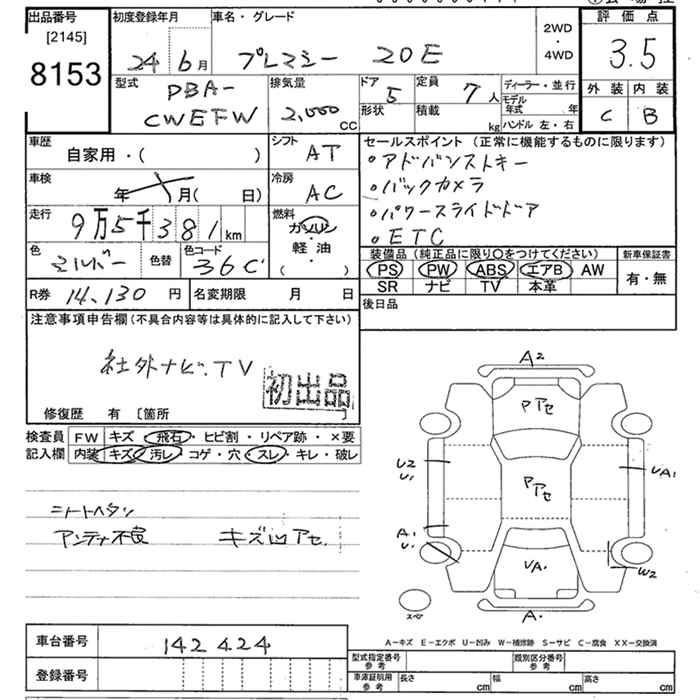 出品番号
[2145]
8153
初度登録年月
24 6月
車名・グレード
プレマシー 20E
2WD
・
4WD
評価点
3.5
外装 内装
C B
型式
DBA-
CWEFW
排気量
2,000
CC
ドア 5
形状
定員 7人
積載 kg
ディーラー・並行
モデル
年式 年
ハンドル 左・右
車歴
自家用・( )
シフト
AT
車検
年 月( 日)
冷房
AC
走行
9万5千381km
燃料
ガソリン
軽・油
( ・ )
色
シルバー
色替
色コード
36C
R券 14,130 円
名変期限 月 日
セールスポイント (正常に機能するものに限ります)
・アドバンストキー
・バックカメラ
・パワースライドドア
・ETC
装備品 (純正品に限り○をつけてください)
新車保証書
PS PW ABS エアB AW
SR ナビ TV 本革
有・無
後日品
注意事項申告欄(不具合内容等は具体的に記入して下さい)
社外ナビ.TV
初出品
修復歴 有 〔箇所
検査員 FW キズ・飛石・ヒビ割・リペア跡・×要
記入欄 内装 キズ・汚レ・コゲ・穴・スレ・キレ・破レ
シートヘタリ
アンテナ不良 キズ凹アセ.
A2
Pアセ
U2
U1
Pアセ
UA1
A1
U1
UA1
W2
スペア
A1
A−キズ E−エクボ U−凹み W−補修跡 S−サビ C−腐食 XX−交換済
車台番号 142424
登録番号
型式指定番号
参考
類別区分番号
参考
車庫証明用
参考
長さ cm 幅 cm 高さ cm